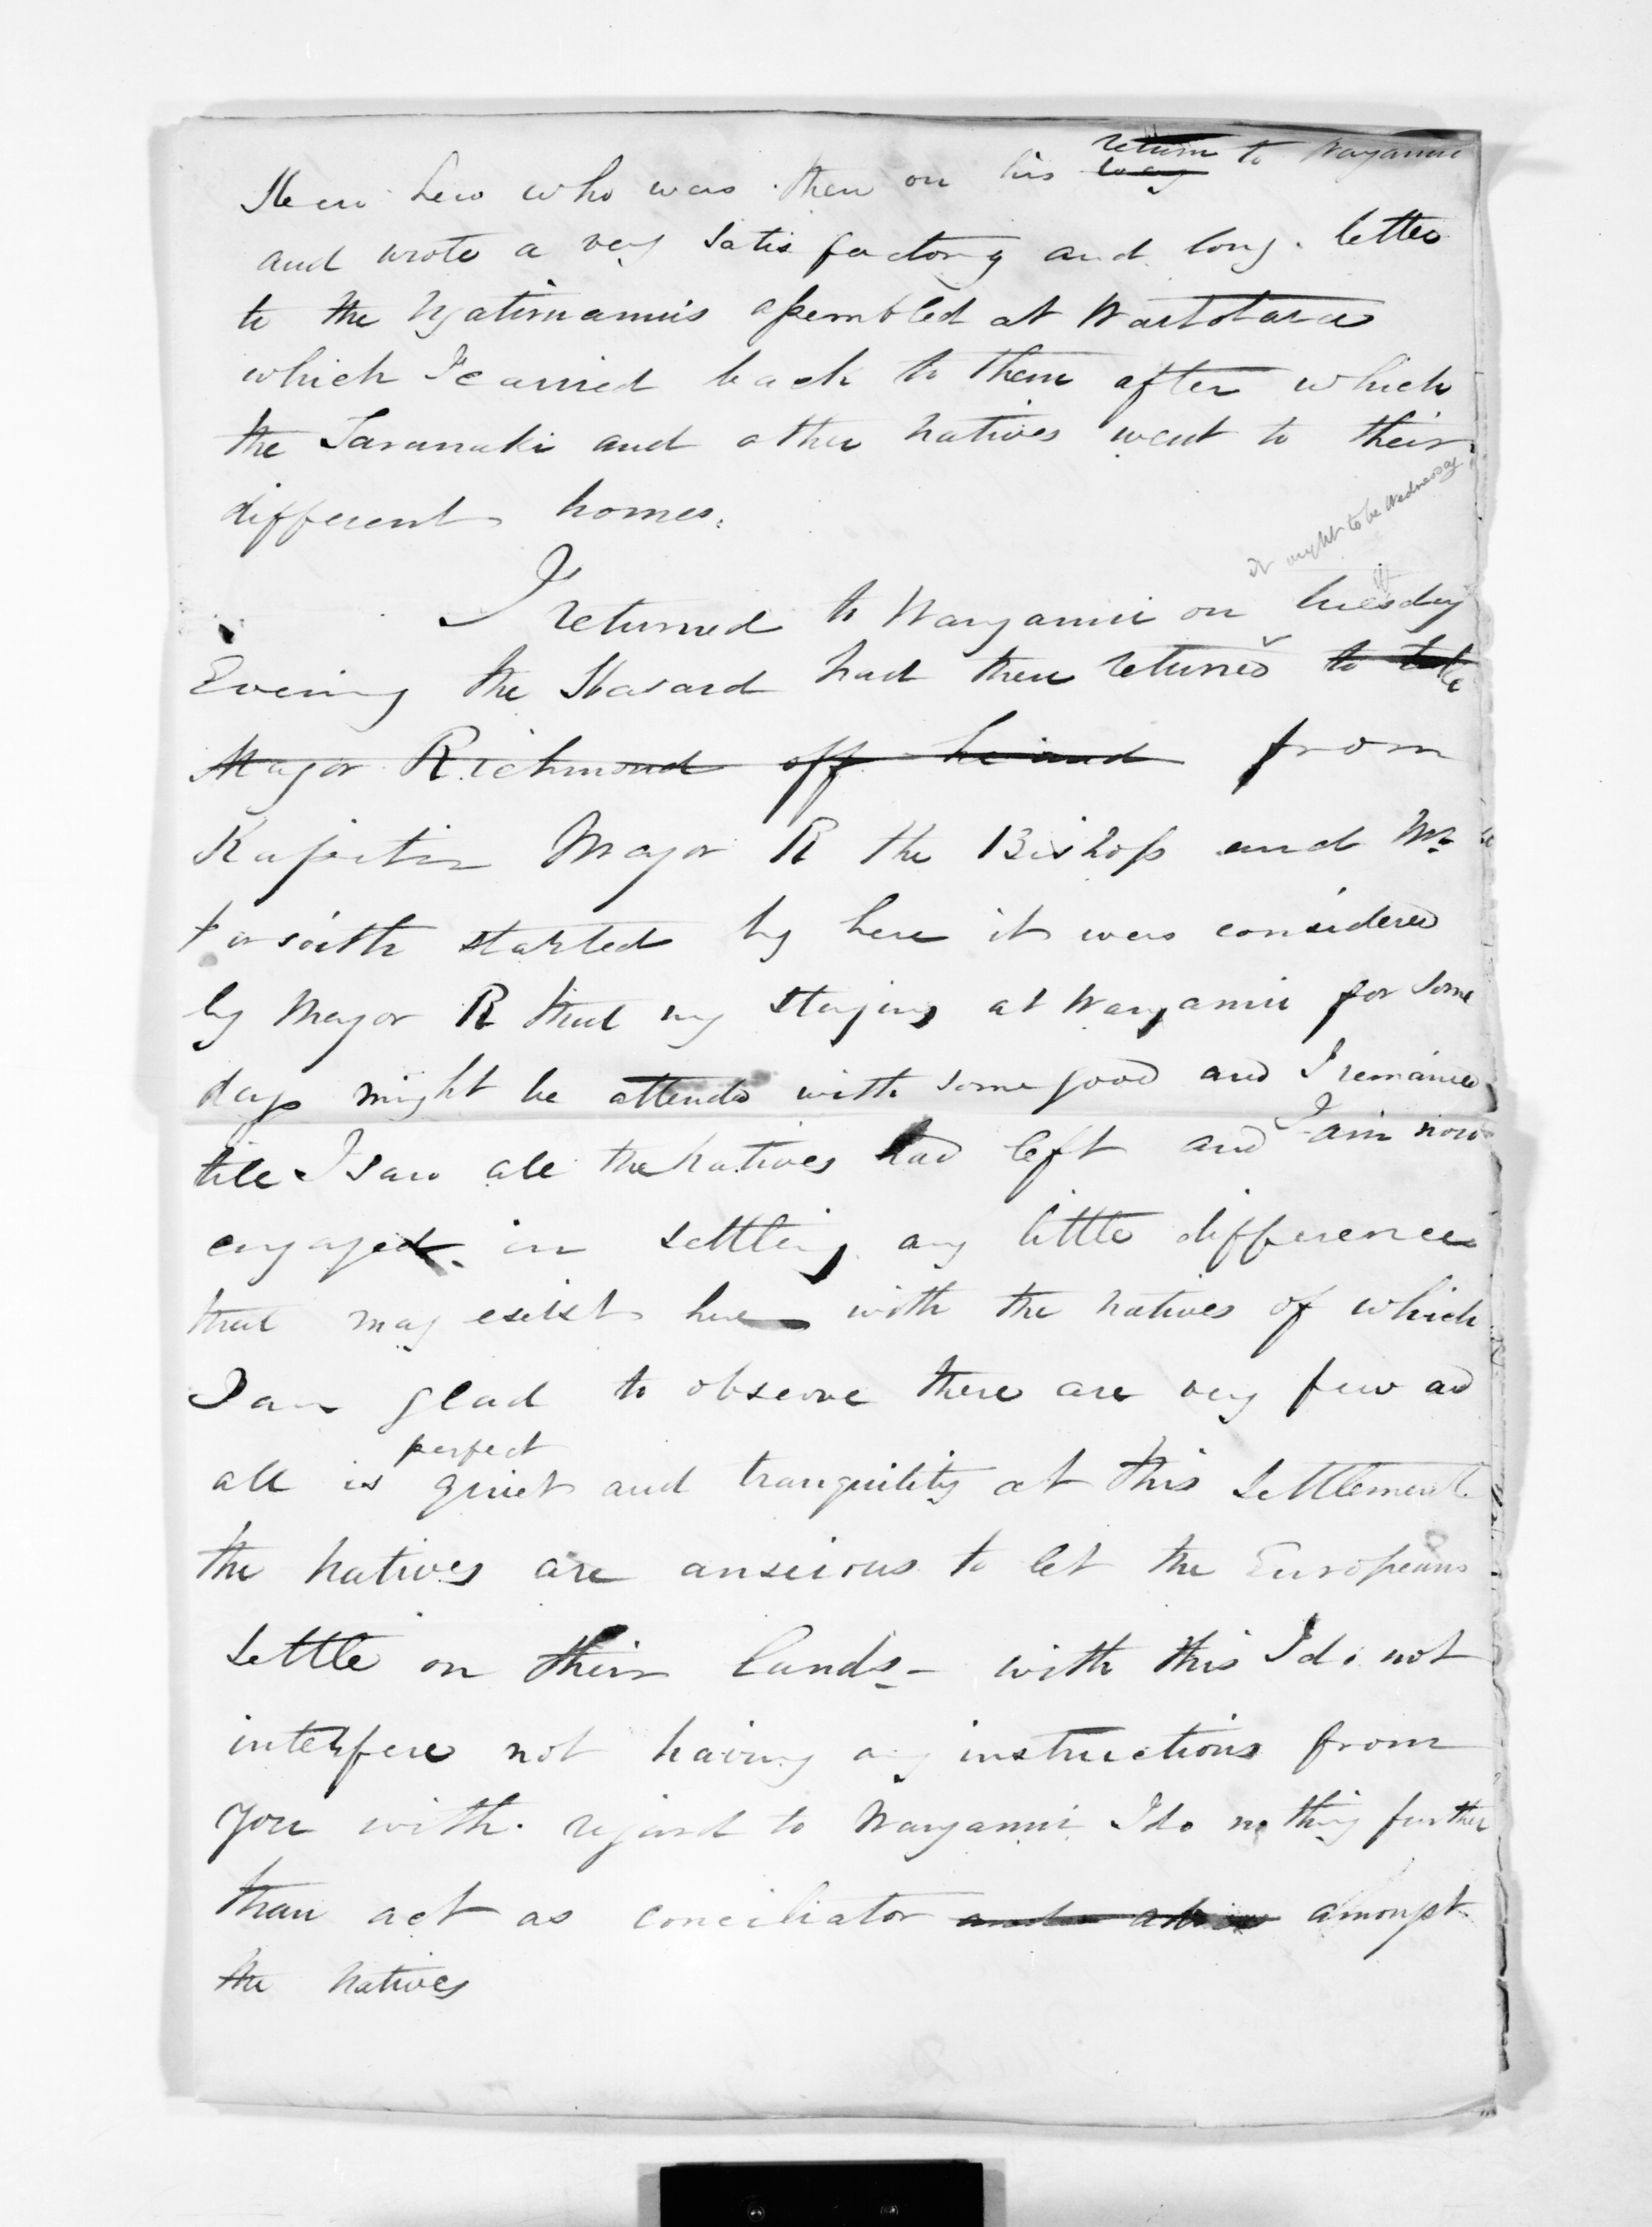 Heu heu who was then on his ~~way~~ return to Wanganui
and wrote a very satisfactory and long letter
to the Ngatiruanuis assembled at Waitotara
which I carried back to them after which
the Taranaki and other natives went to their
different homes.
it ought to be Wednesday
I returned to Wanganui on tuesday
Evening the Hazard had then returned ~~to take~~
~~Major Richmond off~~ from
Kapiti Major R the Bishop and Mr
Forsaith started by here it was considered
by Major R that my staying at Wanganui for some
days might be attended with some good and I remained
till I saw all the natives had left and I am now
engaged in settling any little differences
that may exist here with the natives of which
I am glad to observe there are very few and
all is perfect quiet and tranquility at this settlement
the natives are anxious to let the Europeans
settle on their lands - with this I do not
interfere not having any instructions from
you with regard to Wanganui I do nothing further
than act as conciliator amongst
the natives